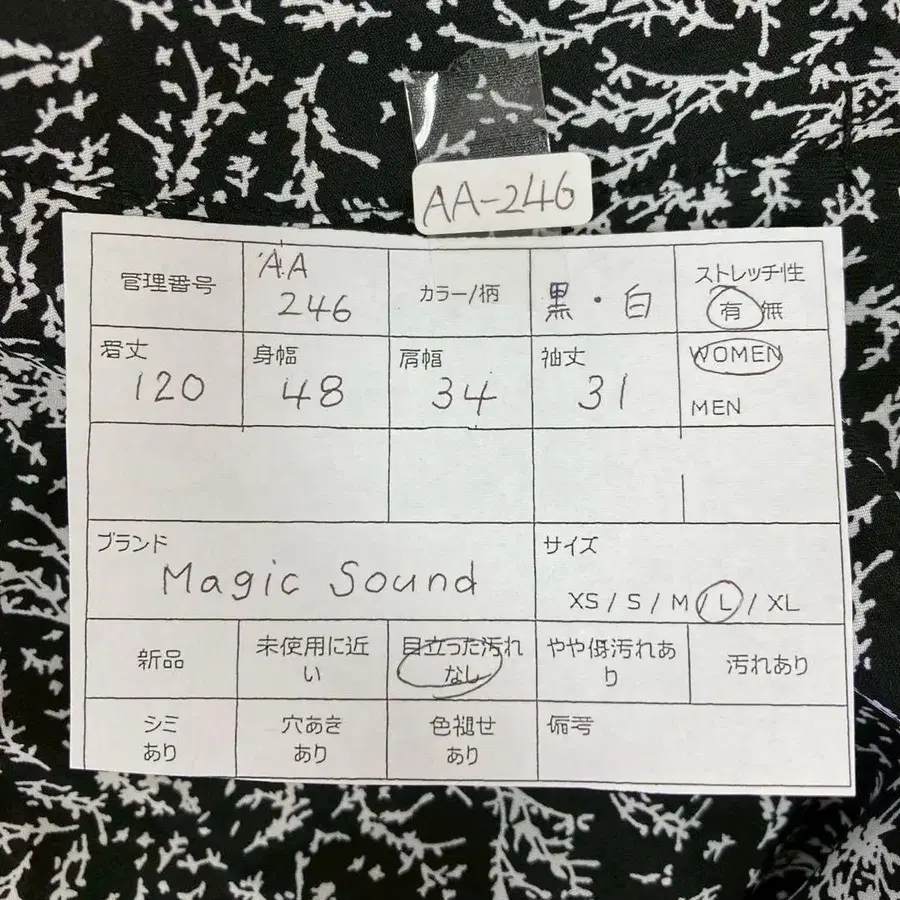 AA-246
管理番号
AA
246
カラー/柄
黒・白
ストレッチ性
有 無
着丈
120
身幅
48
肩幅
34
袖丈
31
WOMEN
MEN
ブランド
Magic Sound
サイズ
XS / S / M / L / XL
新品
未使用に近
い
目立った汚れ
なし
やや低汚れあ
り
汚れあり
シミ
あり
穴あき
あり
色褪せ
あり
備考